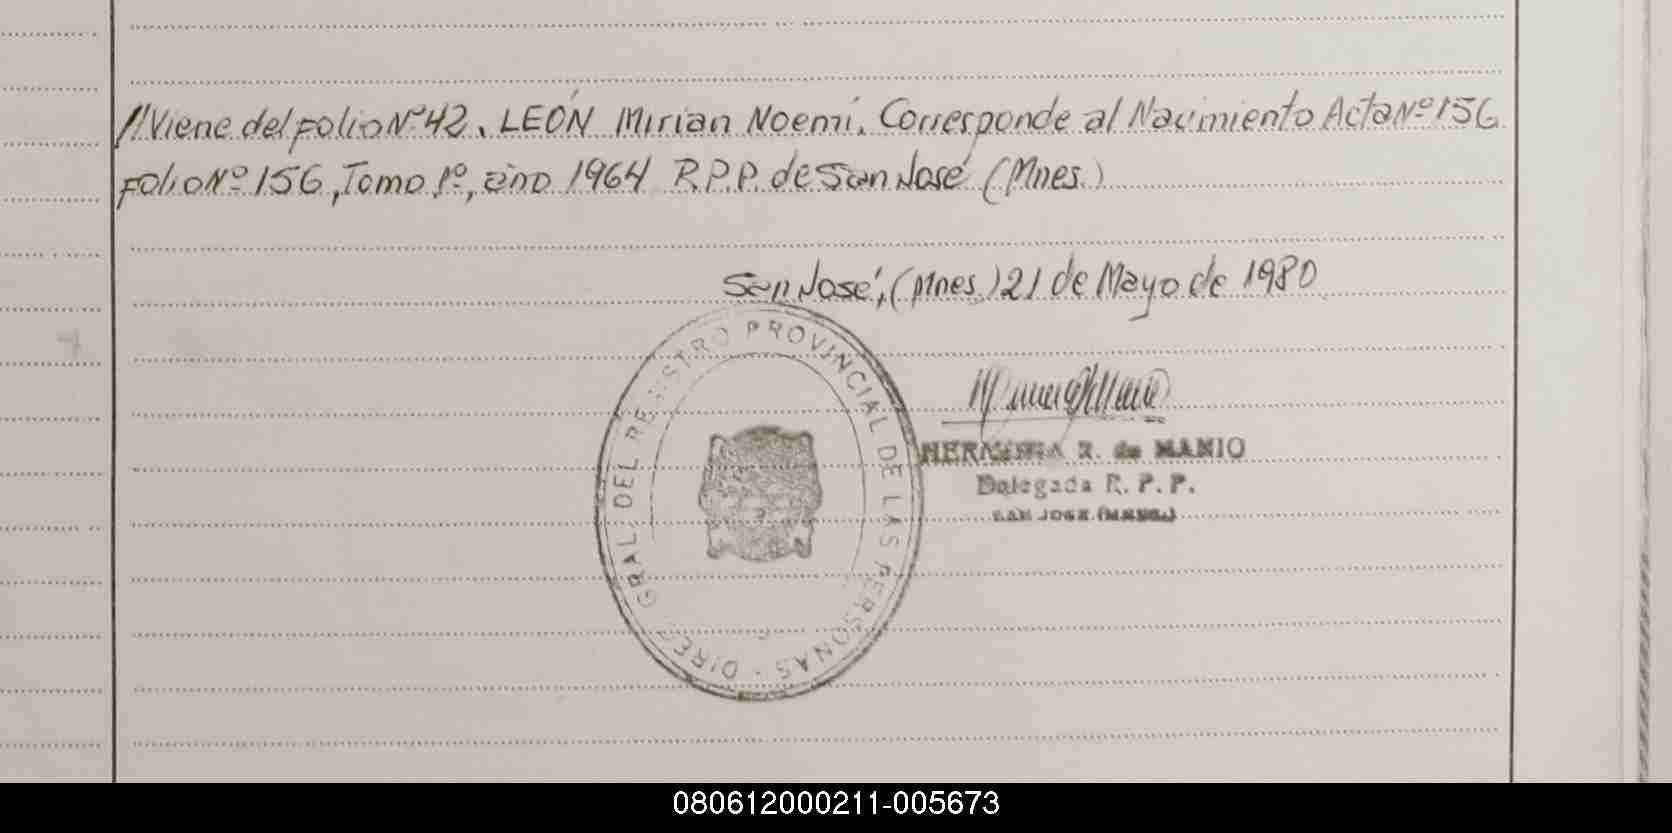 //Viene del Folio Nº 42, LEÓN Mirian Noemí, Corresponde al Nacimiento Acta Nº 156
Folio Nº 156, Tomo 1º, año 1964 R.P.P. de San José (Mnes.)
San José, (Mnes.) 21 de Mayo de 1980
DIREC GRAL. DEL REGISTRO PROVINCIAL DE LAS PERSONAS
HERMINIA R. de MANIO
Delegada R. P. P.
SAN JOSE (MNES.)
080612000211-005673